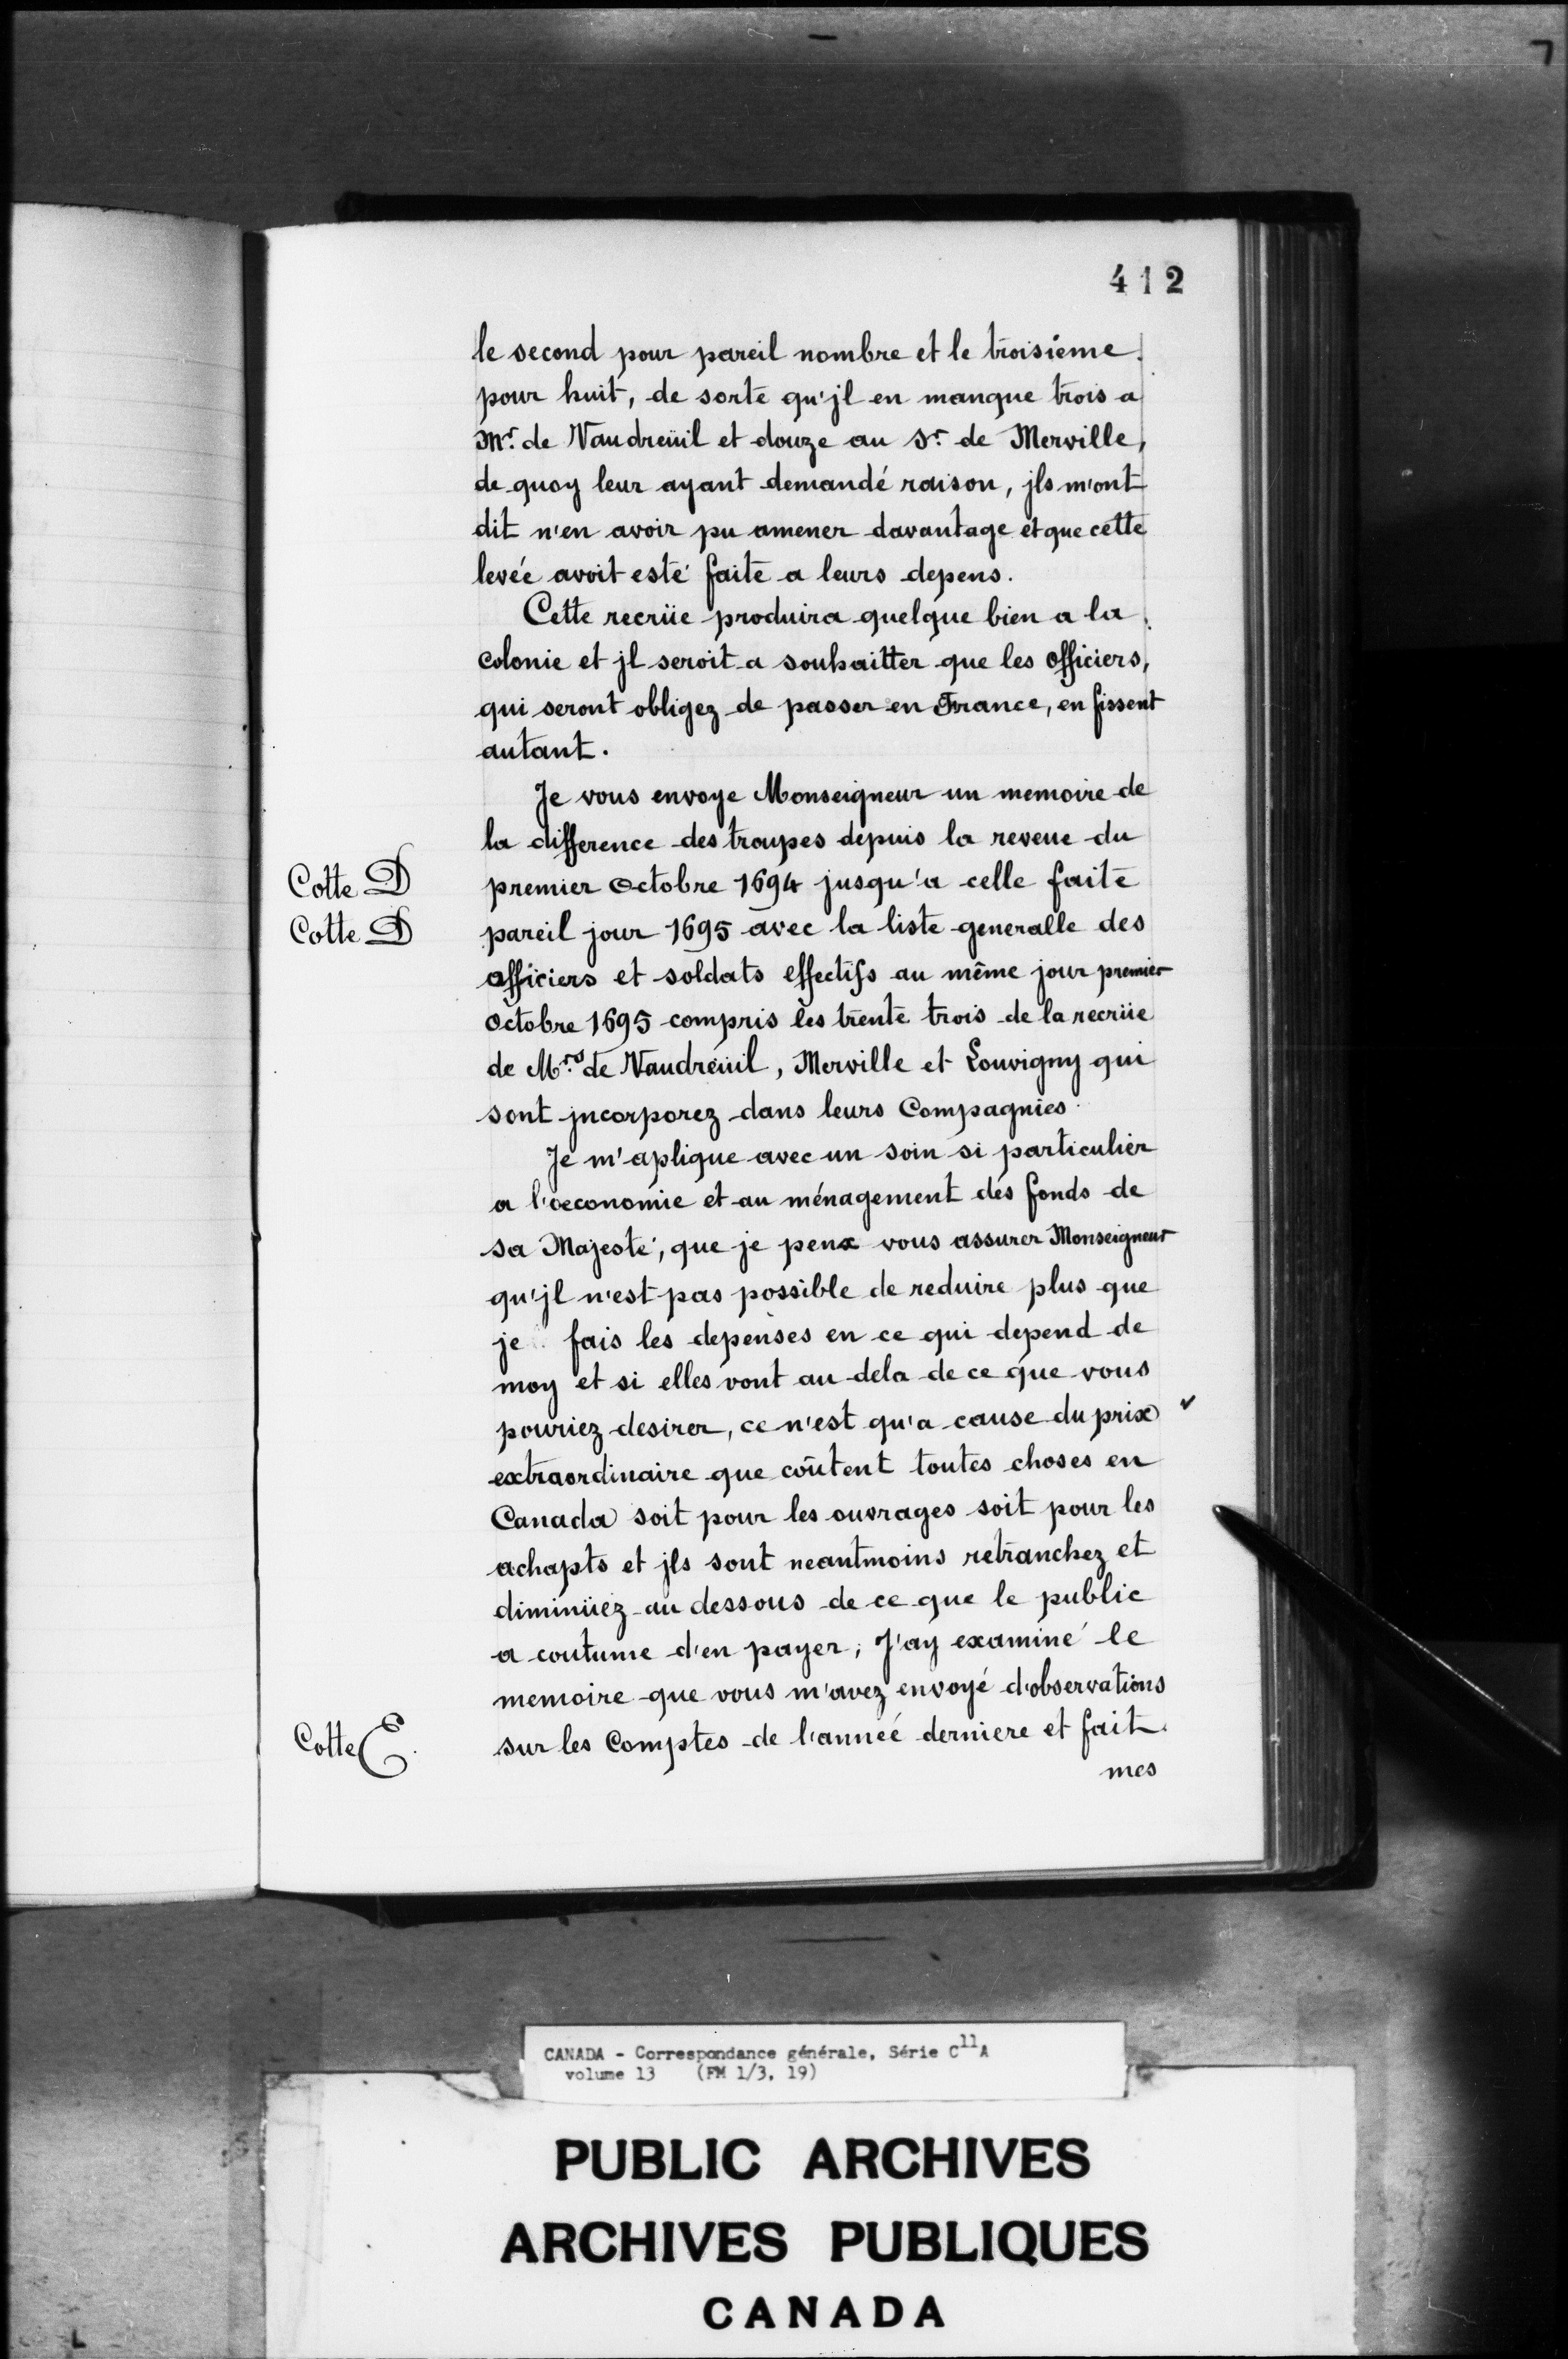 412
le second pour pareil nombre et le troisiéme
pour huit, de sorte qu'jl en manque trois a
Mr. de Vaudreüil et douze au Sr. de Merville,
de quoy leur ayant demandé raison, jls m'ont
dit n'en avoir pu amener davantage et que cette
levée avoit esté faite a leurs depens.
Cette recrüe produira quelque bien a la
Colonie et jl seroit a souhaitter que les officiers,
qui seront obligez de passer en France, en fissent
autant.
Je vous envoye Monseigneur un memoire de
la difference des troupes depuis la reveue du
Cotte D premier octobre 1694 jusqu'a celle faite
Cotte D pareil jour 1695 avec la liste generalle des
officiers et soldats effectifs au même jour premier
octobre 1695 compris les trente trois de la recrüe
de Mrs. de Vaudreüil, Merville et Louvigny qui
sont jncorporez dans leurs Compagnies.
Je m'aplique avec un soin si particulier
a l'oeconomie et au ménagement des fonds de
sa Majesté, que je peux vous assurer Monseigneur
qu'jl n'est pas possible de reduire plus que
je fais les depenses en ce qui depend de
moy et si elles vont au dela de ce que vous
pouriez desirer, ce n'est qu'a cause du prix ✓
extraordinaire que coûtent toutes choses en
Canada soit pour les ouvrages soit pour les
achapts et jls sont neantmoins retranchez et
diminüez au dessous de ce que le public
a coutume d'en payer; J'ay examiné le
memoire que vous m'avez envoyé d'observations
Cotte E. sur les Comptes de l'année derniere et fait
mes
CANADA - Correspondance générale, Série C11A
volume 13 (FM 1/3, 19)
PUBLIC ARCHIVES
ARCHIVES PUBLIQUES
CANADA